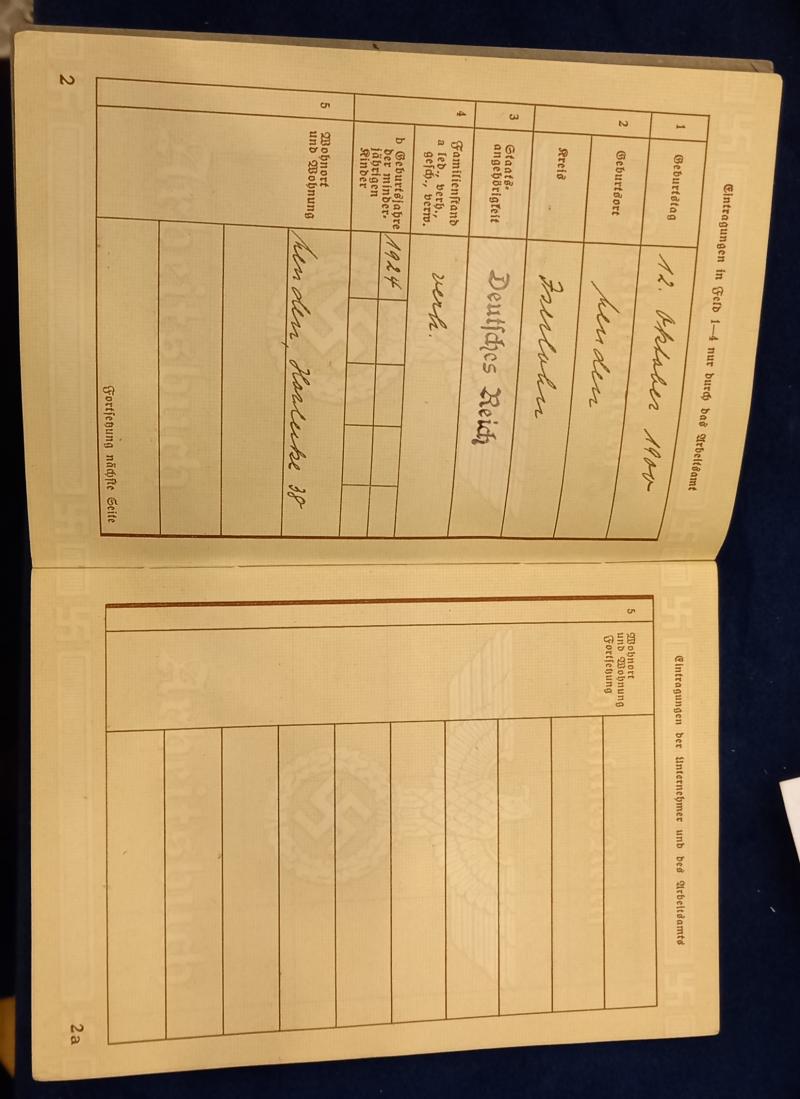 Eintragungen in Feld 1—4 nur durch das Arbeitsamt
1 Geburtstag 12. Oktober 1900
2 Geburtsort Menden
Kreis Iserlohn
3 Staats-
angehörigkeit Deutsches Reich
4 Familienstand
a led., verh.,
gesch., verw. verh.
b Geburtsjahre
der minder-
jährigen
Kinder 1924
5 Wohnort
und Wohnung Menden, 38
Fortsetzung nächste Seite
2
Eintragungen der Unternehmer und des Arbeitsamts
5 Wohnort
und Wohnung
Fortsetzung
2a